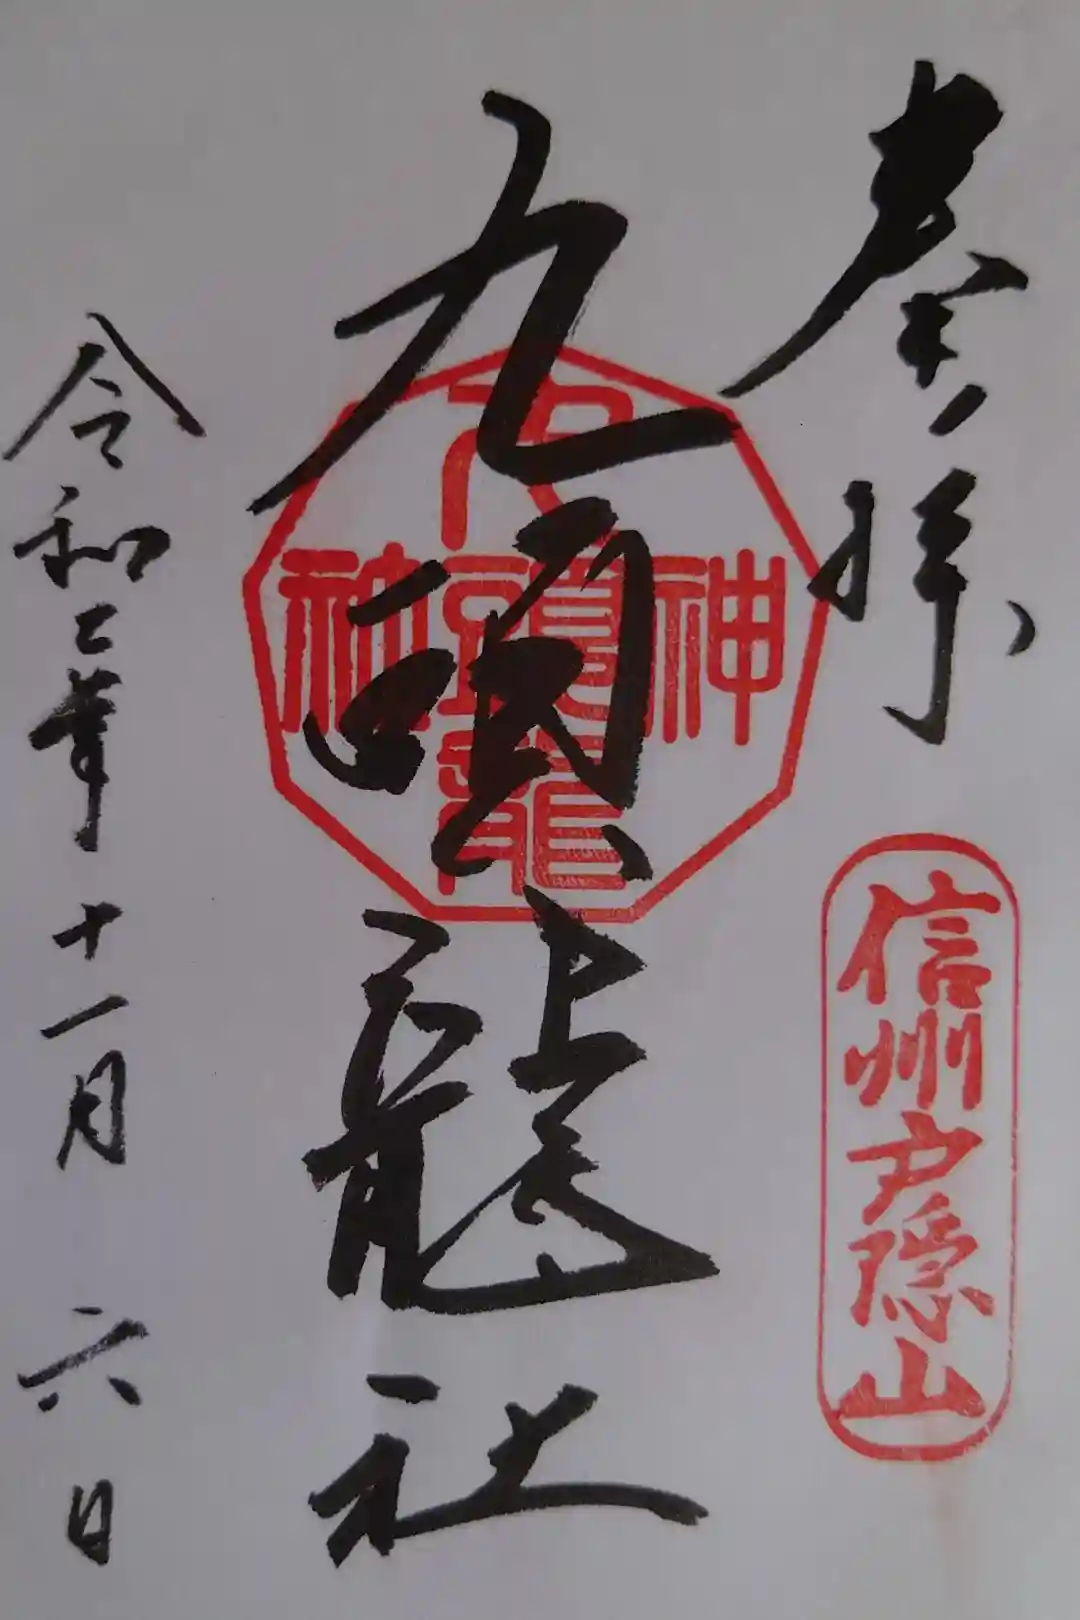 奉拝
信州戸隠山
九頭龍社
九頭龍
神社
令和二年十一月六日